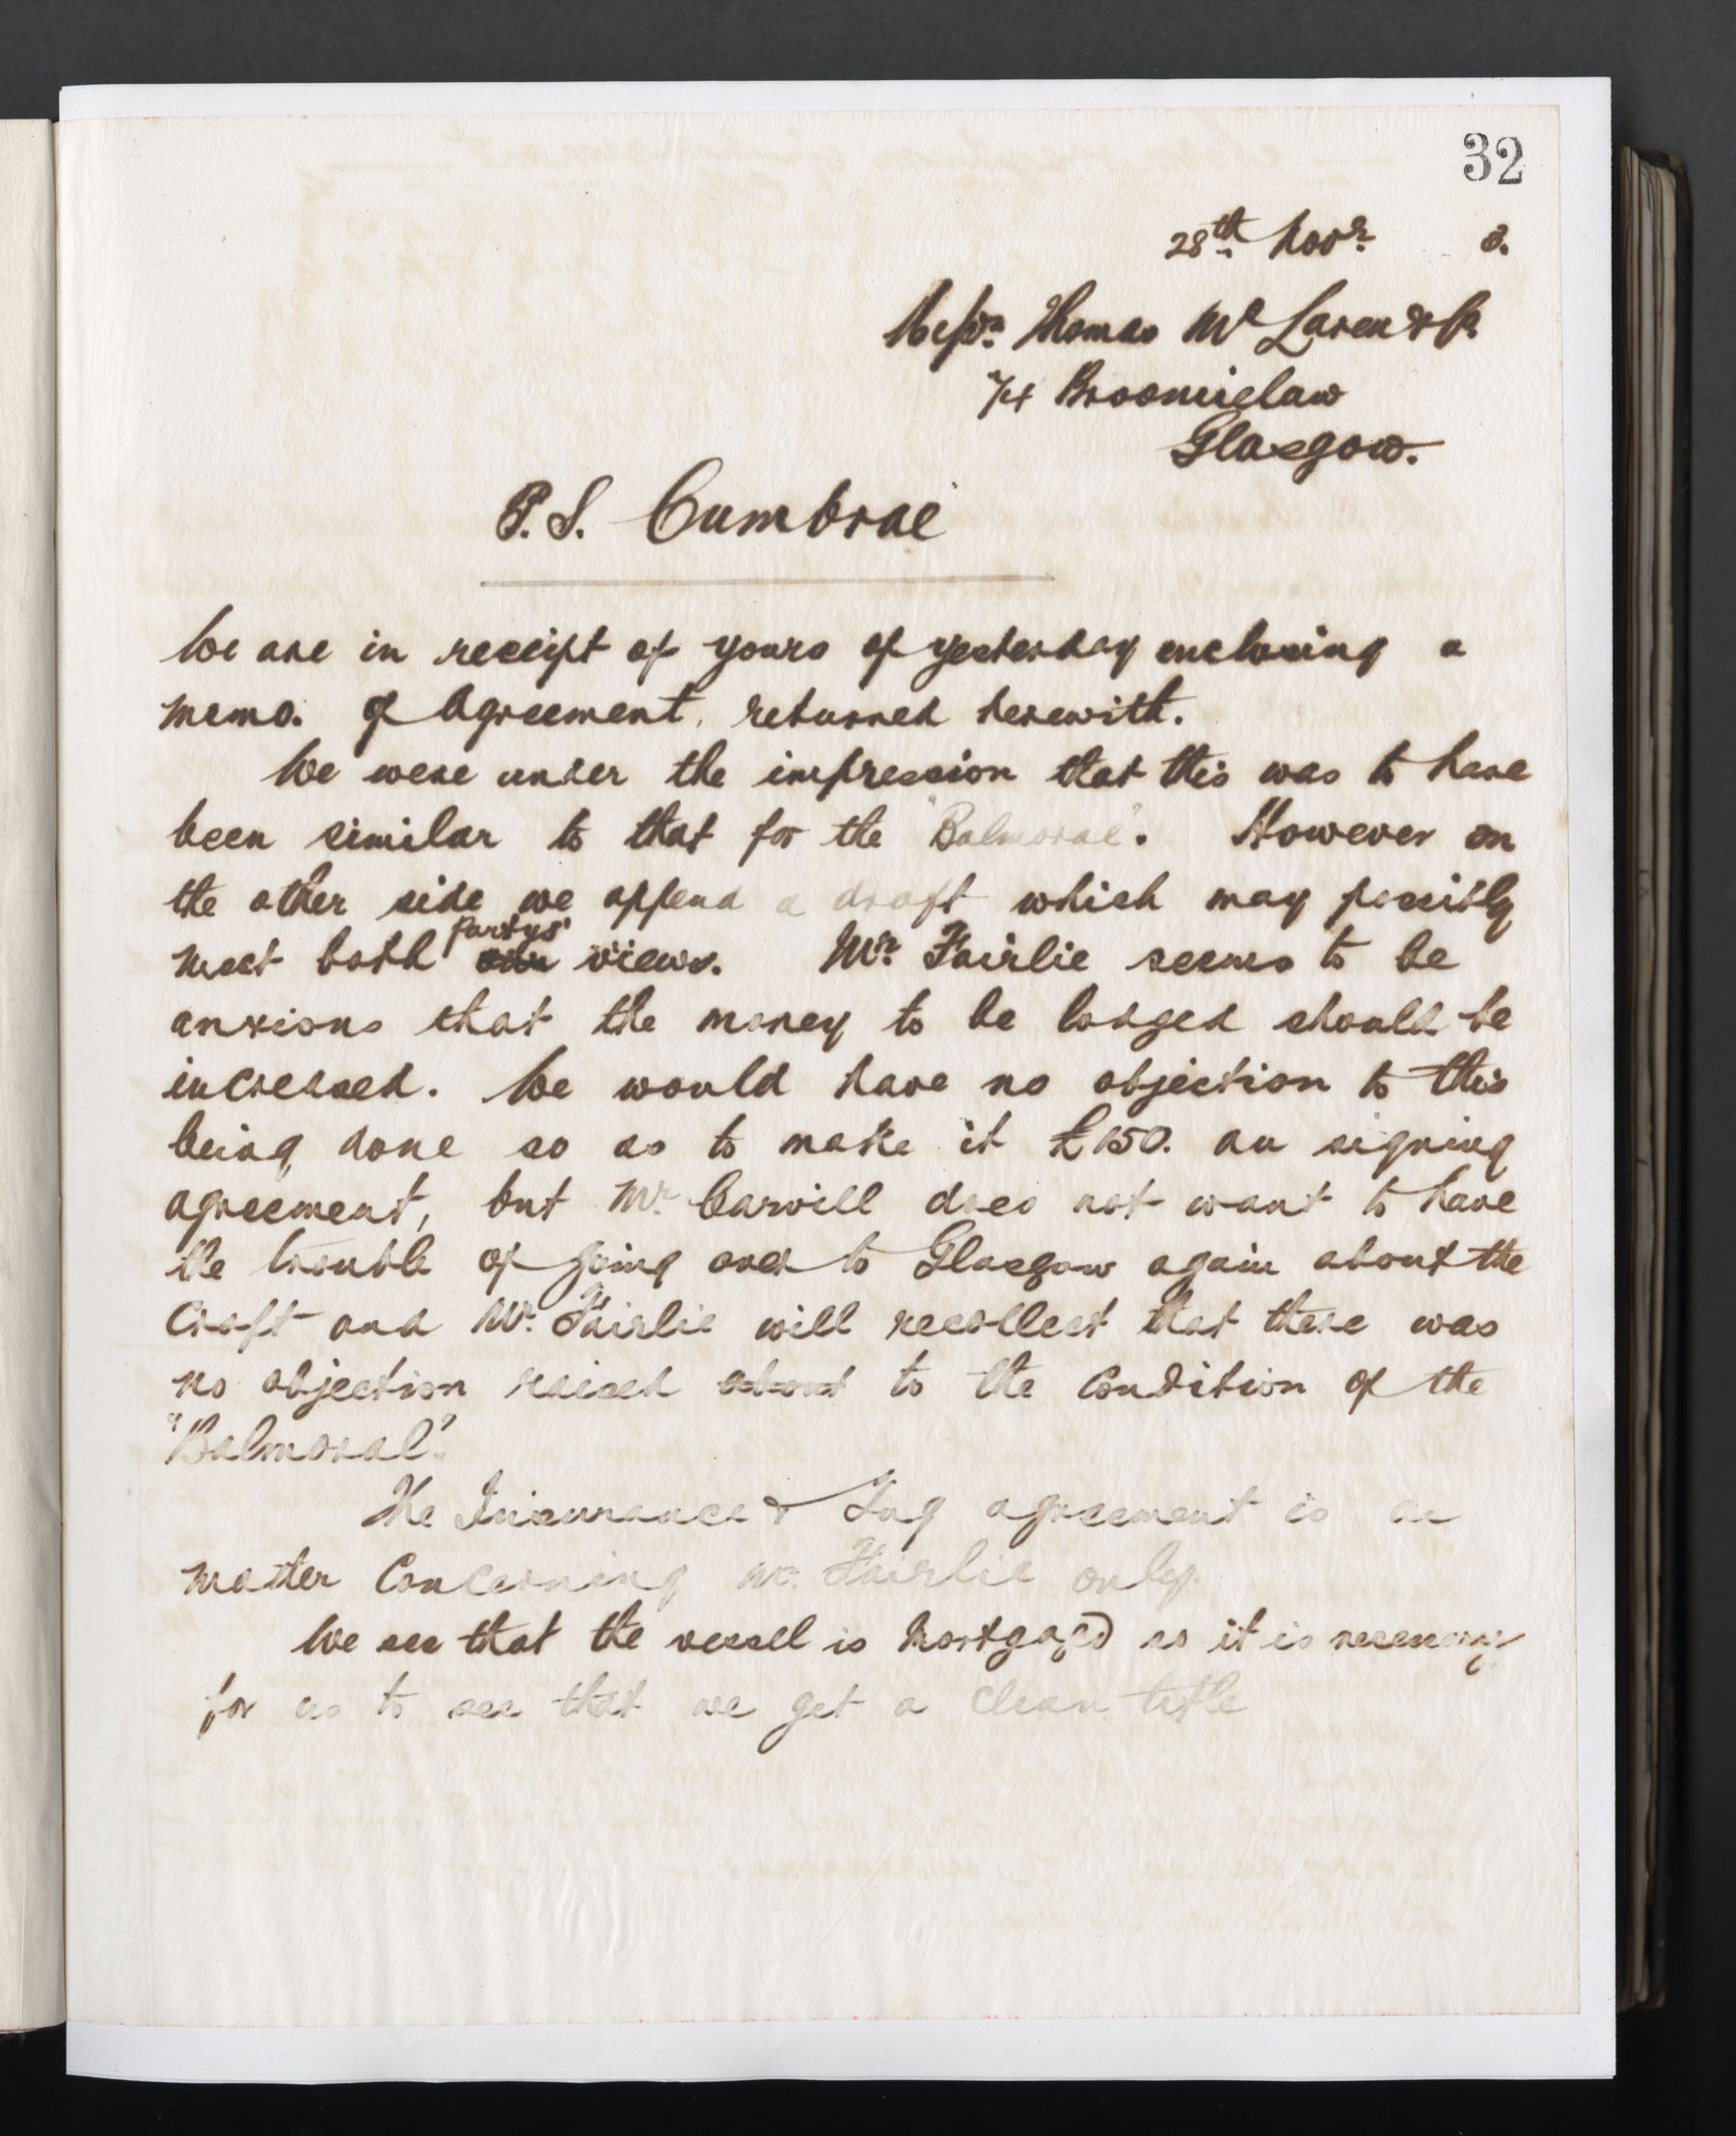 32
28th Novr. 3.
Messrs. Thomas Mc Laren & Co.
74 Broomielaw
Glasgow.
P.S. Cumbrae
We are in receipt of yours of yesterday enclosing a
memo. of Agreement, returned herewith.
We were under the impression that this was to have
been similar to that for the "Balmoral". However on
the other side we append a draft which may possibly
meet both partys' our views. Mr. Fairlie seems to be
anxious that the money to be lodged should be
increased. We would have no objection to this
being done so as to make it £150. on signing
agreement, but Mr. Carvill does not want to have
the trouble of going over to Glasgow again about the
Craft and Mr. Fairlie will recollect that there was
no objection raised about to the Condition of the
"Balmoral".
The Insurance & Tug agreement is a
matter Concerning Mr. Fairlie only.
We see that the vessel is Mortgaged so it is necessary
for us to see that we get a clean title